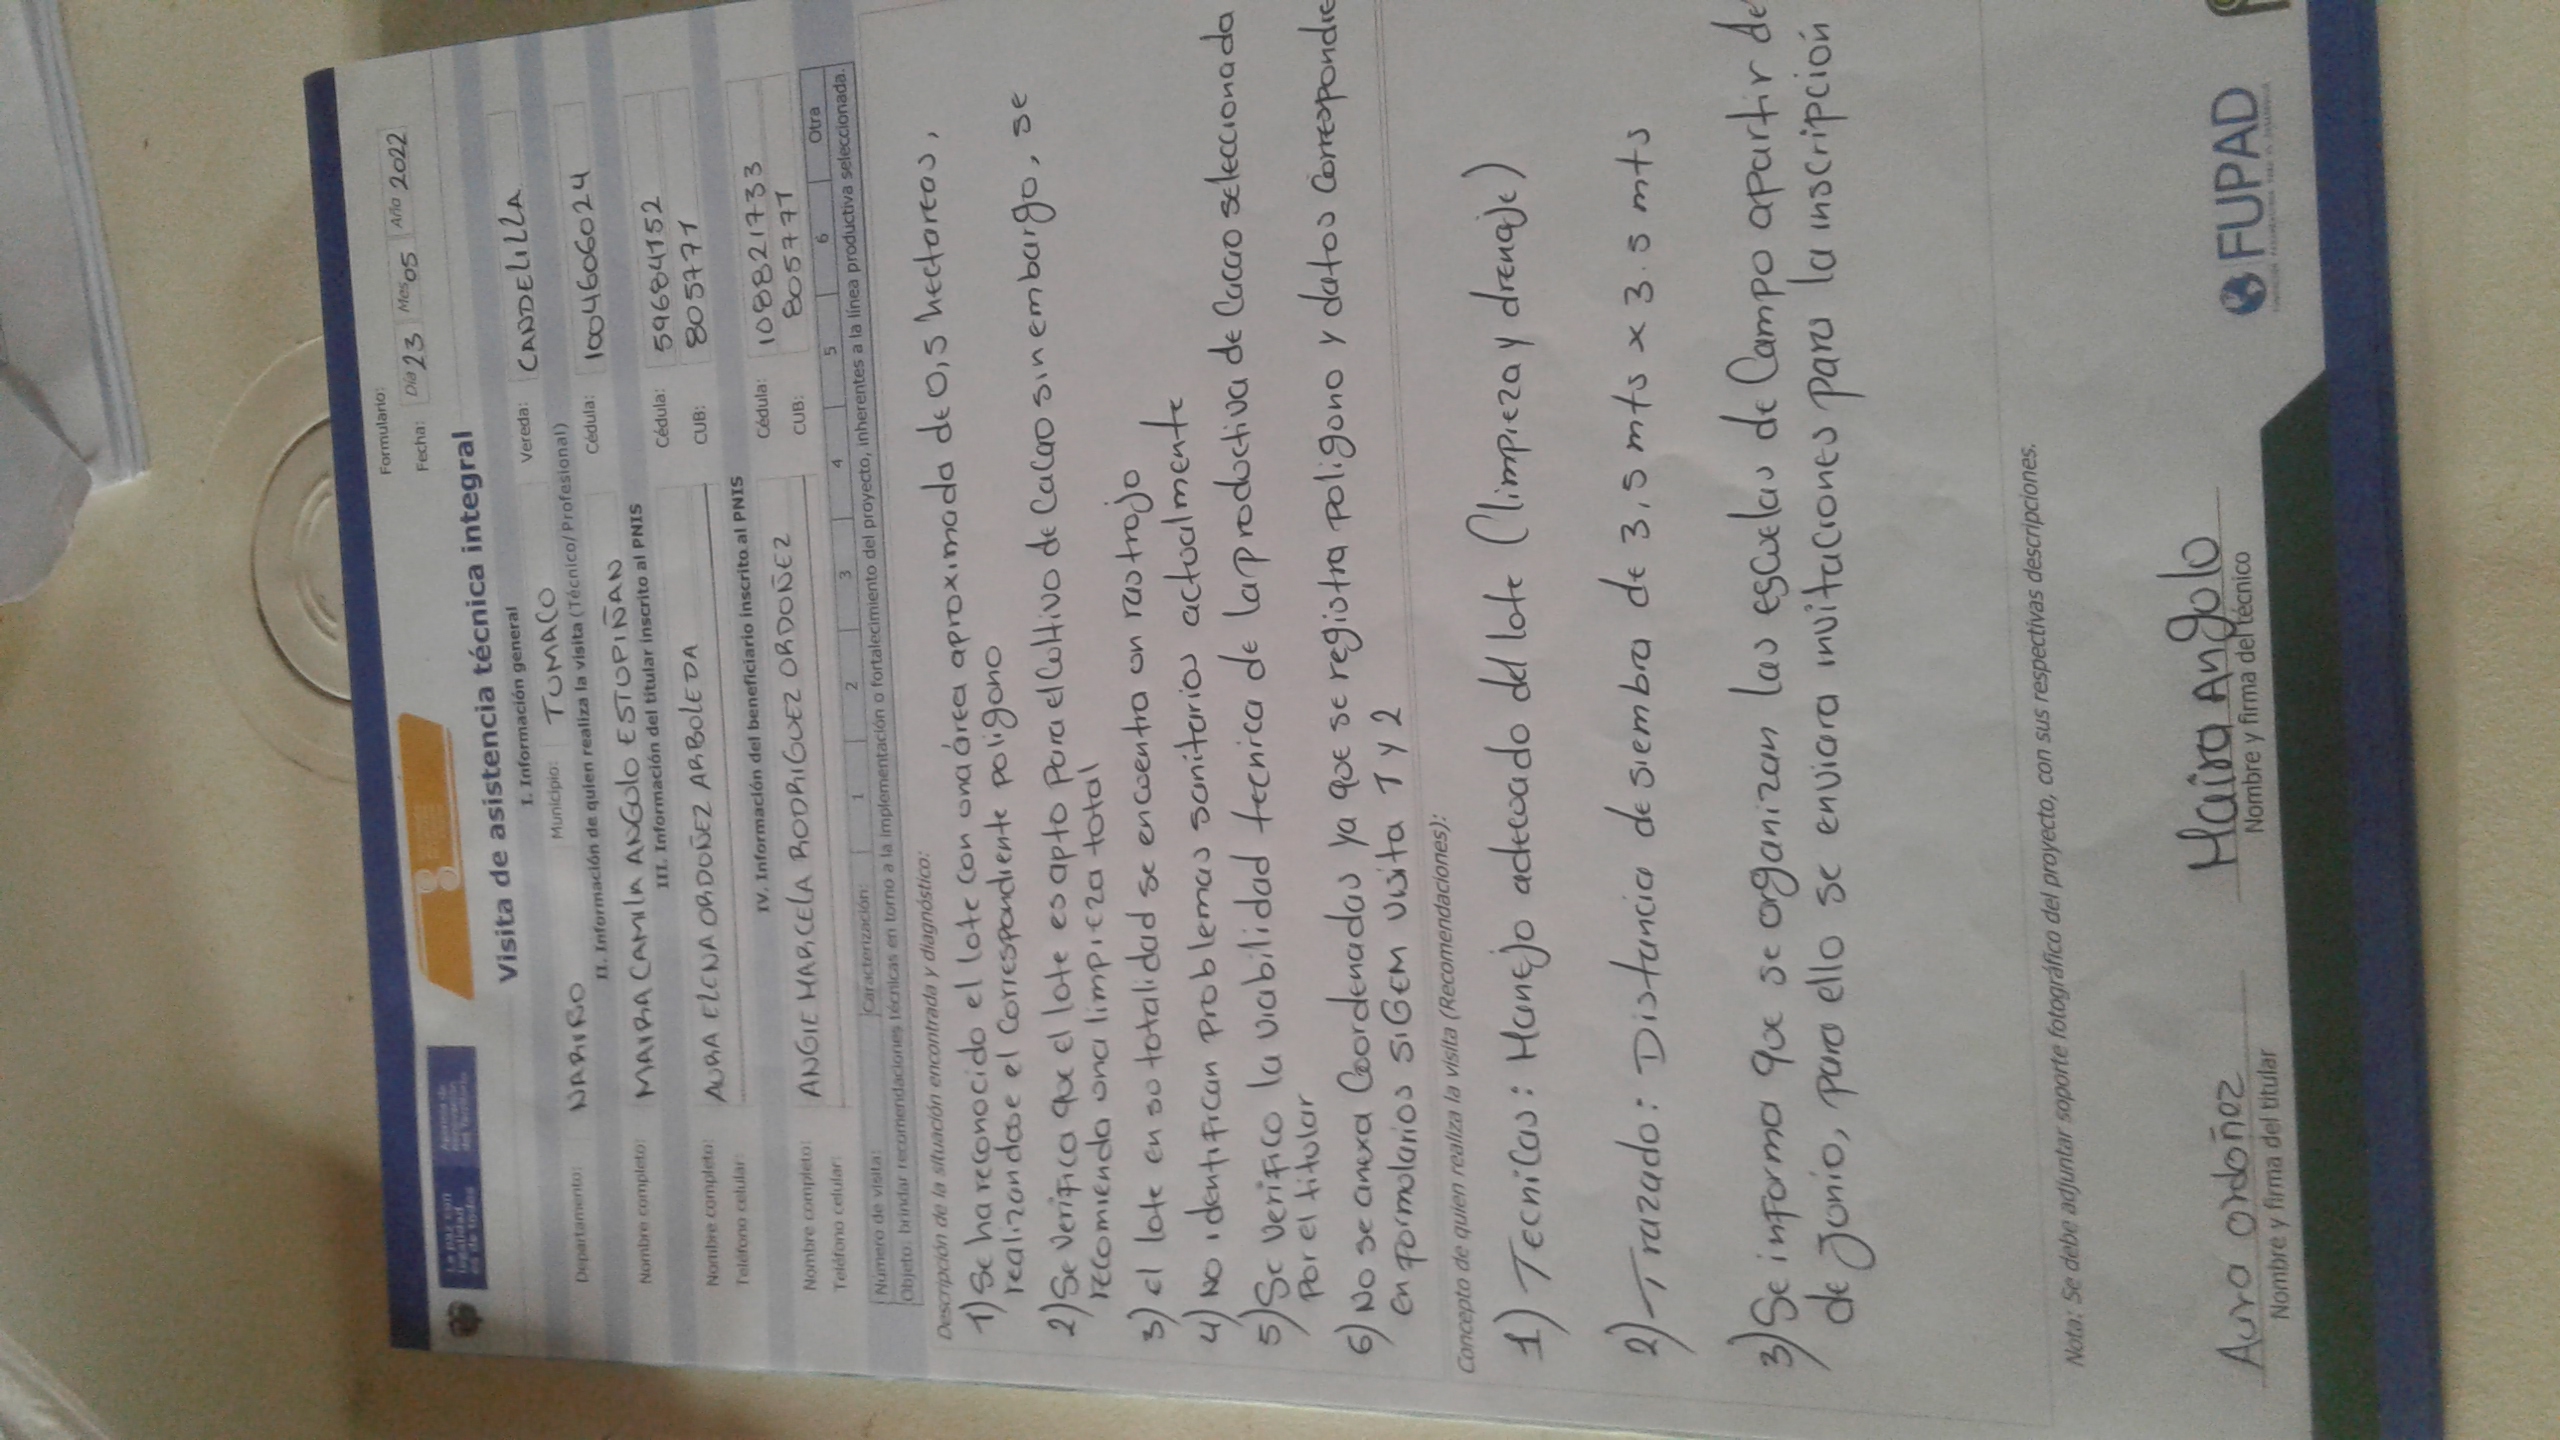 La paz con
legalidad
es de todos
Agencia de
Renovación
del Territorio
Formulario:
Fecha: Día 23 Mes 05 Año 2022
Visita de asistencia técnica integral
I. Información general
Departamento: NARIÑO Municipio: TUMACO Vereda: CANDELILLA
II. Información de quien realiza la visita (Técnico/Profesional)
Nombre completo: MAIRA CAMILA ANGULO ESTUPIÑAN Cédula: 1004606024
III. Información del titular inscrito al PNIS
Nombre completo: AURA ELENA ORDOÑEZ ARBOLEDA Cédula: 59684152
Teléfono celular: CUB: 805771
IV. Información del beneficiario inscrito al PNIS
Nombre completo: ANGIE MARICELA RODRIGUEZ ORDOÑEZ Cédula: 1088821733
Teléfono celular: CUB: 805771
Número de visita: Caracterización: 1 2 3 4 5 6 Otra
Objeto: brindar recomendaciones técnicas en torno a la implementación o fortalecimiento del proyecto, inherentes a la línea productiva seleccionada.
Descripción de la situación encontrada y diagnóstico:
1) Se ha reconocido el lote con una área aproximada de 0,5 hectareas,
realizandose el correspondiente poligono
2) Se verifica que el lote es apto para el cultivo de Cacao sin embargo, se
recomienda una limpieza total
3) el lote en su totalidad se encuentra en rastrojo
4) No identifican problemas sanitarios actualmente
5) Se verifico la viabilidad tecnica de la productiva de Cacao seleccionada
por el titular
6) No se anexa Coordenadas ya que se registra poligono y datos correspondie
en formularios SIGEM visita 1 y 2
Concepto de quien realiza la visita (Recomendaciones):
1) Tecnicas: Manejo adecuado del lote (limpieza y drenaje)
2) Trazado: Distancia de siembra de 3,5 mts x 3.5 mts
3) Se informa que se organizan las escuelas de Campo apartir de
de Junio, para ello se enviara invitaciones para la inscripción
Nota: Se debe adjuntar soporte fotográfico del proyecto, con sus respectivas descripciones.
Aura Ordoñez
Nombre y firma del titular
Maira Angulo
Nombre y firma del técnico
FUPAD